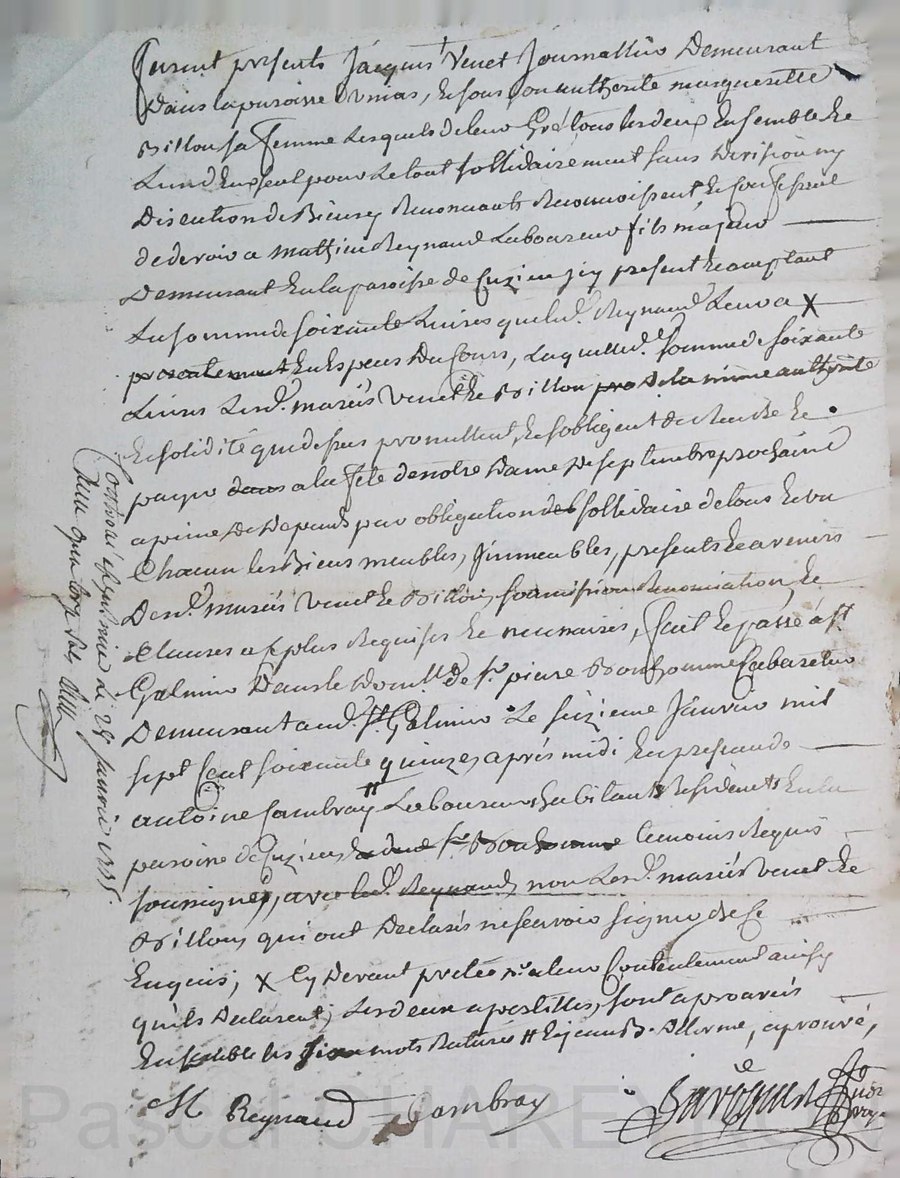 furent presents Jacques Venet Journallier Demeurant
Dans la paroisse Unias, & sous son authorité margueritte
Brillon sa femme Lesquels de leur Gré tous les deux Ensemble &
L'un d'Eux seul pour Le tout sollidairement sans Division ny
Discution de Biens y Renoncants Reconnoissent & confessent
de devoir a Mathieu Reynaud Laboureur fils majeur
Demeurant En la paroisse de Cuzieu icy present & acceptant
La somme de soixante Livres que led. Reynaud Leur a X
presentement En Especes Du Cours, Laquelle d. somme de soixante
Livres Lesd. mariés Venet & Brillon pro De la même authorité
& solidité que dessus promettent & s'obligent de Rendre &
payer dans a la fête de notre Dame De septembre prochaine
a peine De Depends par obligation des sollidaire de tous & un
Chacun les Biens meubles, Jmmeubles, presents & avenirs
Desd. mariés Venet & Brillon, soumission Renonciation, &
Clauses a ce plus Requises & necessaires, fait & passé a St.
Galmier Dans le Domlle. de sr. pierre Bonhomme Cabaretier
Demeurant aud. St. Galmier Le seizieme Janvier mil
sept Cent soixante quinze, après midi En presence de
antoine Jambray # Laboureurs habitants & Residents En la
paroisse de Cuzieu & dud. sr. Bonhomme temoins Requis
soussignés, avec led. Reynaud, non Lesd. mariés Venet &
Brillon, qui ont Declarés ne scavoir signer de ce
Enquis, X Cy Devant pretée Re. a leur Contentement ainsy
qu'ils Declarent, Les deux apostilles, sont aprouvés
Ensemble les six mots Raturés # & jean B. Delorme, aprouvé,
M Reynaud Jambray
Controlé a St Galmier le 28 janvier 1775.
Reçu quatorze sols
Pascal CHAREYRON